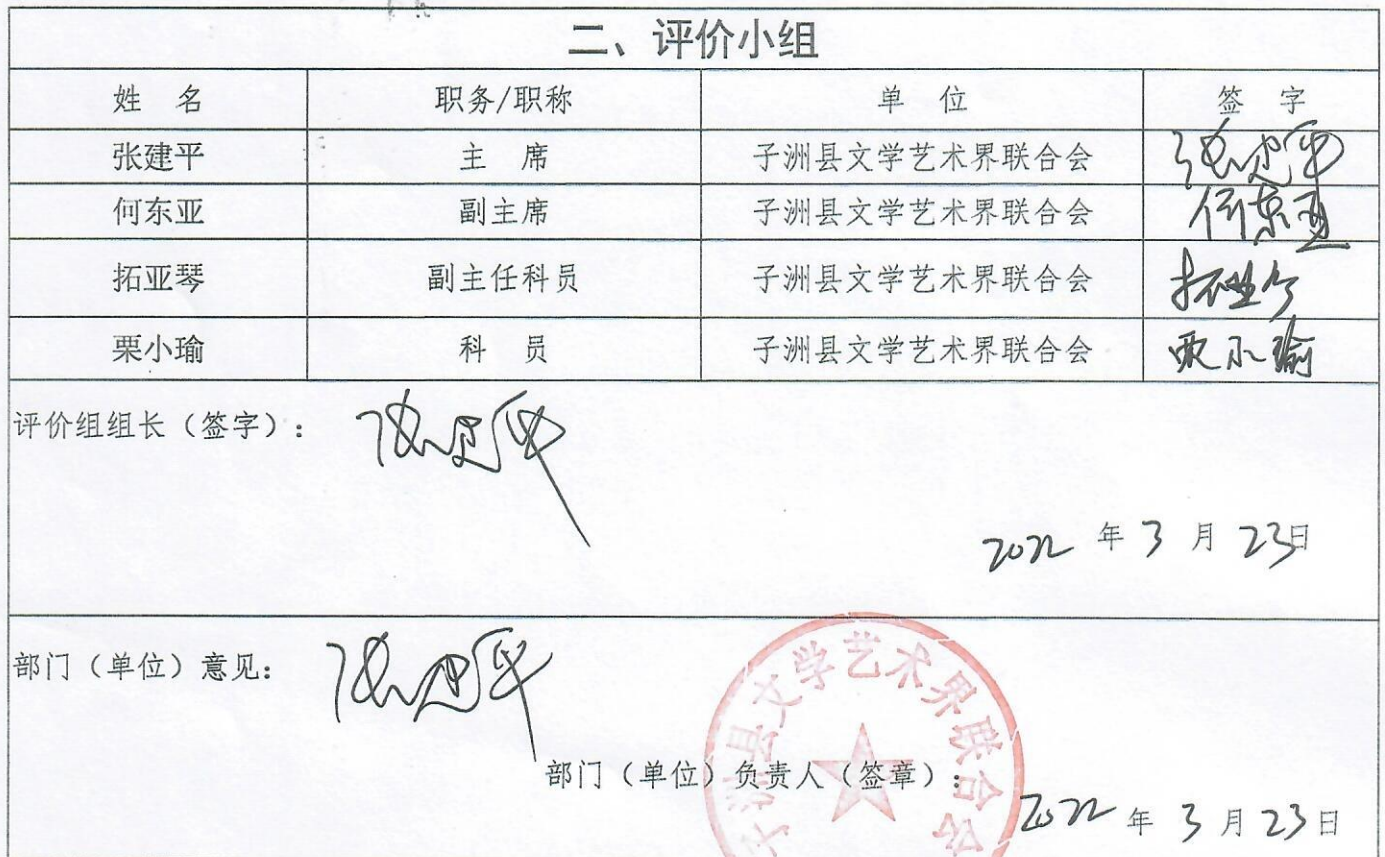 二、评价小组
姓 名 职务/职称 单 位 签 字
张建平 主 席 子洲县文学艺术界联合会 张建平
何东亚 副主席 子洲县文学艺术界联合会 何东亚
拓亚琴 副主任科员 子洲县文学艺术界联合会
栗小瑜 科 员 子洲县文学艺术界联合会 栗小瑜
评价组组长（签字）： 张建平
2022 年 3 月 23日
部门（单位）意见： 张建平
子洲县文学艺术界联合会
部门（单位）负责人（签章）：
2022 年 3 月 23日